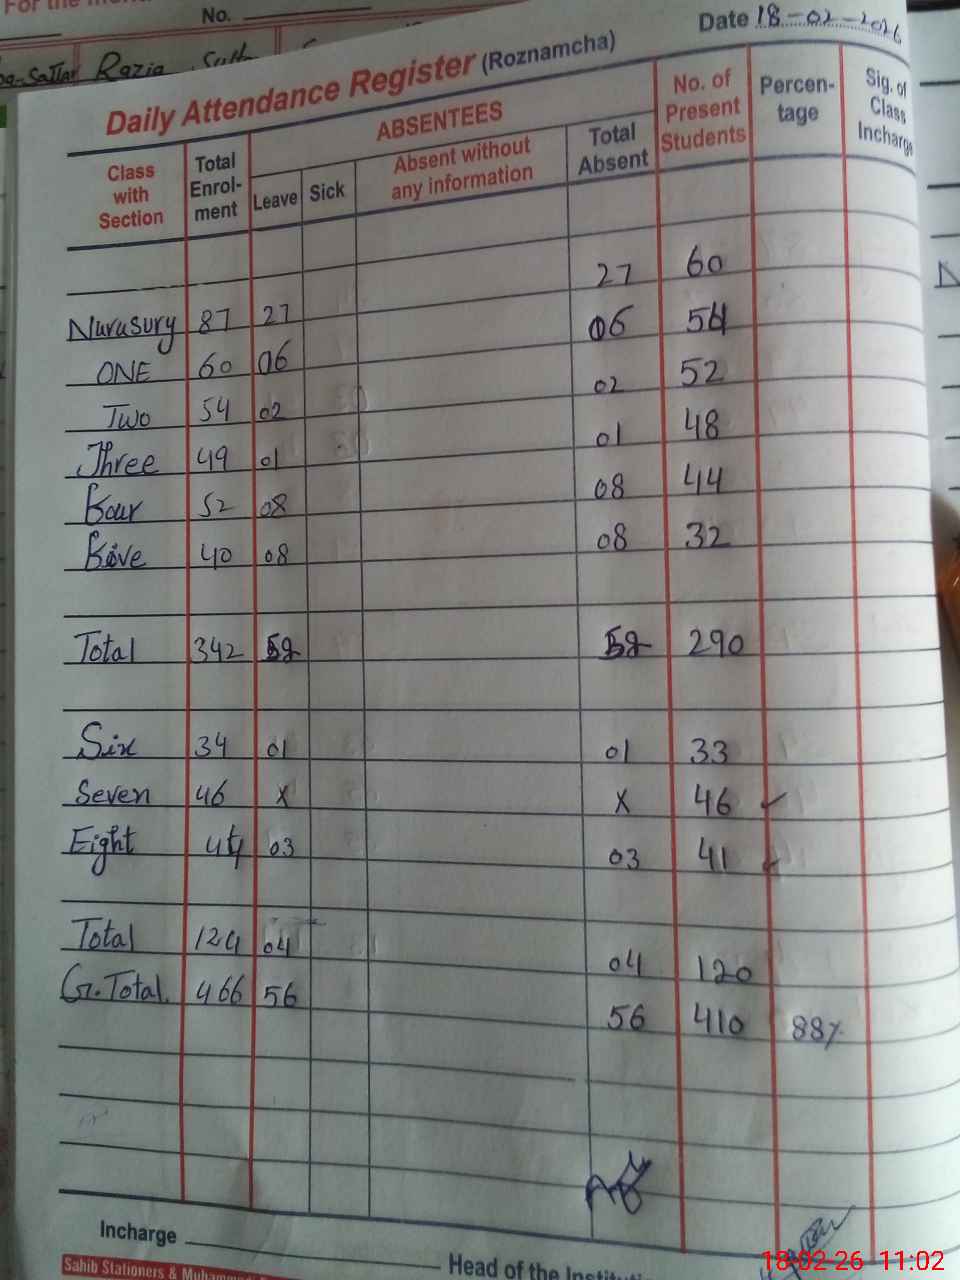 For the
No.
Razia
Date 18-02-2026
Daily Attendance Register (Roznamcha)
Class with Section Total Enrol-ment ABSENTEES Leave Sick Absent without any information Total Absent No. of Present Students Percen-tage Sig. of Class Incharge
Nurusury 87 27 27 60
ONE 60 06 06 54
Two 54 02 02 52
Three 49 01 01 48
Four 52 08 08 44
Five 40 08 08 32
Total 342 52 52 290
Six 34 01 01 33
Seven 46 X X 46
Eight 44 03 03 41
Total 124 04 04 120
G.Total. 466 56 56 410 88%
Incharge
Head of the
Sahib Stationers &
18 02 26 11:02